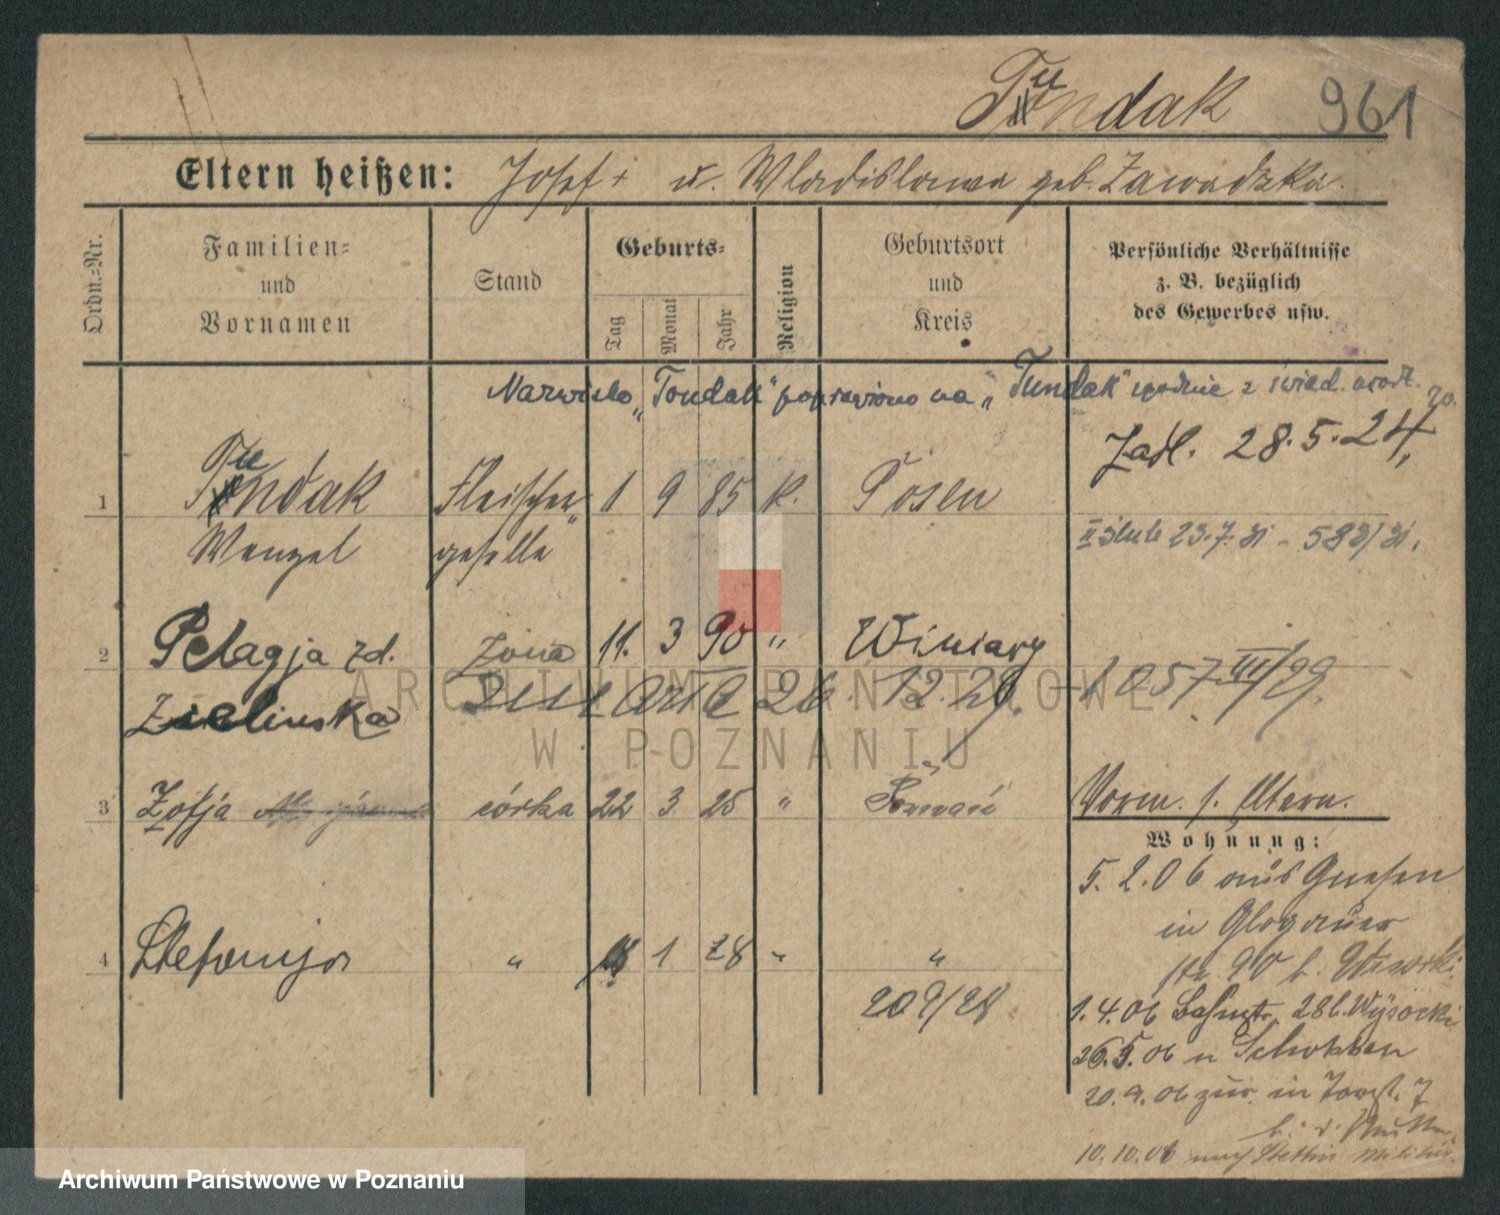 Tundak 961
Eltern heißen: Josef + u. Wladislawa geb. Zawadzka.
Ordn.=Nr.
Familien=
und
Vornamen
Stand
Geburts=
Tag
Monat
Jahr
Religion
Geburtsort
und
Kreis
Persönliche Verhältnisse
z. B. bezüglich
des Gewerbes usw.
Nazwisko „Tondak" poprawiono na „Tundak" zgodnie z świad. urodz.
Zadl. 28.5.24,
1 Tundak Fleischer= 1 9 85 k. Posen
Wenzel geselle
II ślub 23.7.31 - 583/31.
2 Pelagja zd. żona 11. 3 90 " Winiary
Zielinska zmarła 26.12.29. 1057 III/29.
3 Zofja córka 22 3 25 " Poznań
Vorm. s. Eltern.
Wohnung:
5.2.06 aus Gnesen
in Glogauer
str. 90 b.
4 Stefanja " 18 1 28 " "
209/28
1.4.06 28 b. Wysocki
26.5.06 n Schokken
20.9.06 zur. in
10.10.06 nach Stettin Militär
ARCHIWUM PAŃSTWOWE
W POZNANIU
Archiwum Państwowe w Poznaniu